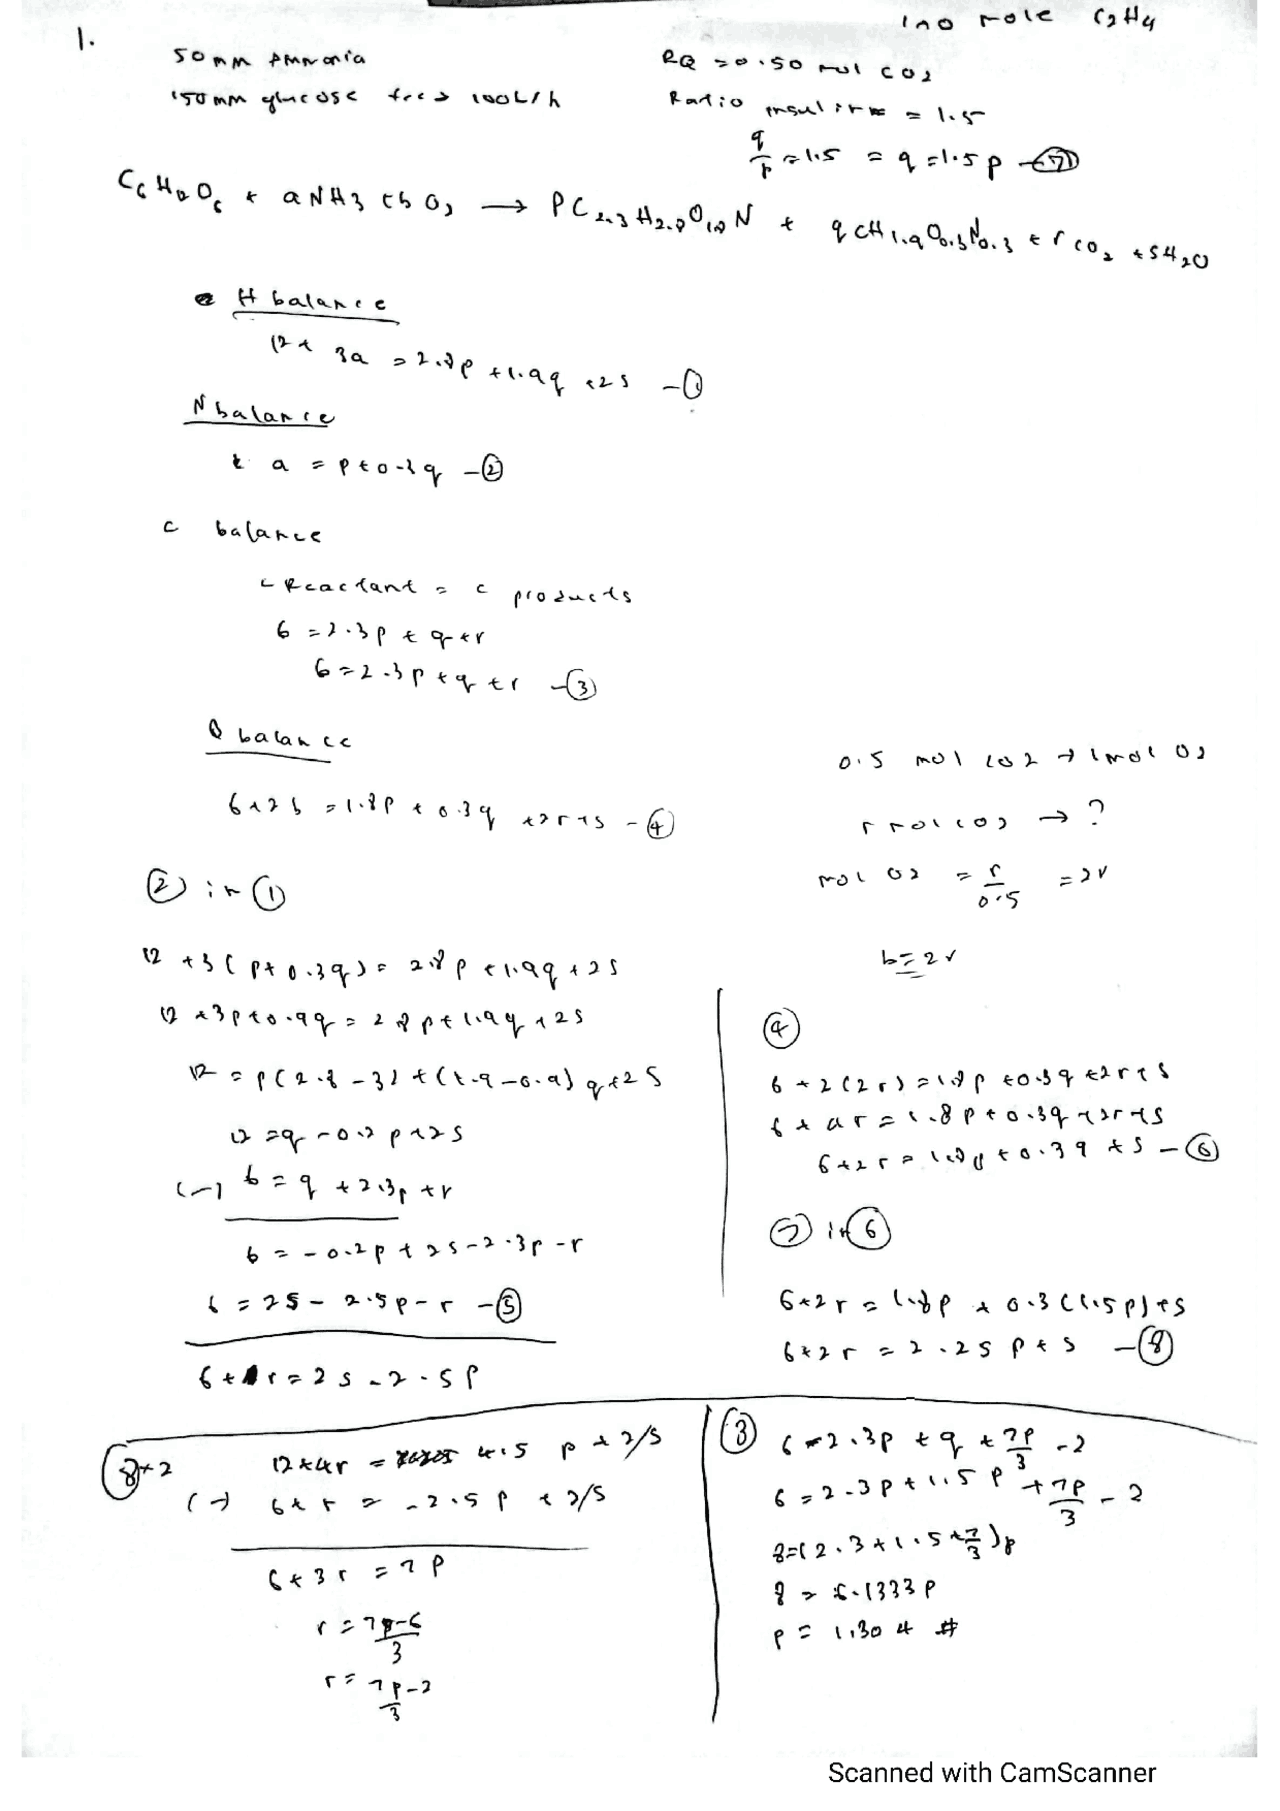 1no mole C2H4
1.
50mm Ammonia
RQ = 0.50 mol CO2
150mm glucose feed 100L/h
Ratio insulin = 1.5
q/p = 1.5 = q = 1.5p - ⑦
C6H12O6 + aNH3 + bO2 → PC2.3H2.8O1.8N + qCH1.9O0.3N0.3 + rCO2 + SH2O
H balance
12 + 3a = 2.8p + 1.9q + 2s - ①
N balance
a = p + 0.3q - ②
C balance
C Reactant = C products
6 = 2.3p + q + r
6 = 2.3p + q + r - ③
O balance
0.5 mol CO2 → 1 mol O2
6 + 2b = 1.8p + 0.3q + 2r + s - ④
r mol CO2 → ?
② in ①
mol O2 = r/0.5 = 2r
12 + 3(p + 0.3q) = 2.8p + 1.9q + 2s
b = 2r
12 + 3p + 0.9q = 2.8p + 1.9q + 2s
12 = p(2.8 - 3) + (1.9 - 0.9)q + 2s
12 = q - 0.2p + 2s
(-) 6 = q + 2.3p + r
6 = -0.2p + 2s - 2.3p - r
6 = 2s - 2.5p - r - ⑤
6 + r = 2s - 2.5p
④
6 + 2(2r) = 1.8p + 0.3q + 2r + s
6 + 4r = 1.8p + 0.3q + 2r + s
6 + 2r = 1.8p + 0.3q + s - ⑥
⑦ in ⑥
6 + 2r = 1.8p + 0.3(1.5p) + s
6 + 2r = 2.25p + s - ⑧
⑧ × 2
12 + 4r = 4.5p + 2s
(-) 6 + r = -2.5p + 2s
6 + 3r = 7p
r = 7p-6/3
r = 7p/3 - 2
③ 6 = 2.3p + q + 7p/3 - 2
6 = 2.3p + 1.5p + 7p/3 - 2
8 = (2.3 + 1.5 + 7/3)p
8 = 6.1333p
p = 1.304 #
Scanned with CamScanner